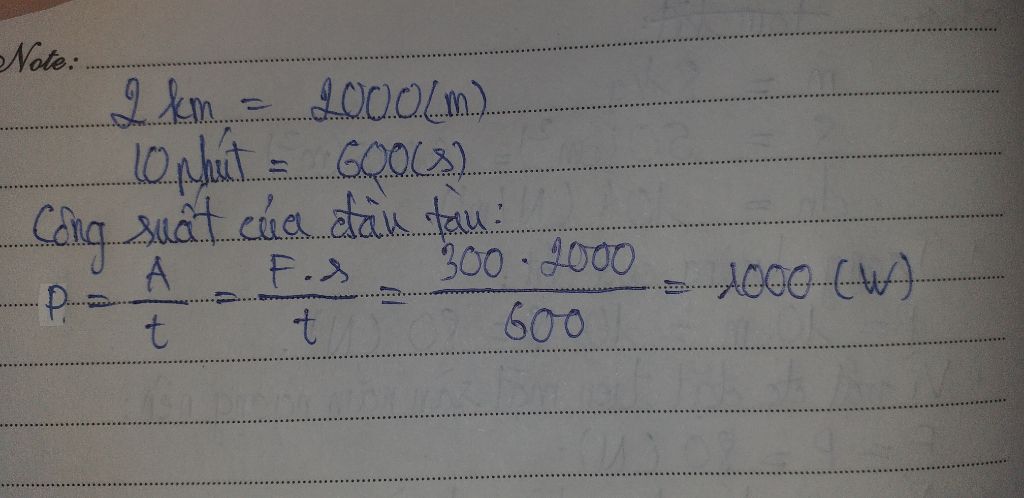 Note:
2 km = 2000(m)
10 phút = 600(s)
Công suất của đầu tàu:
P = A/t = F.s/t = 300.2000/600 = 1000 (W)